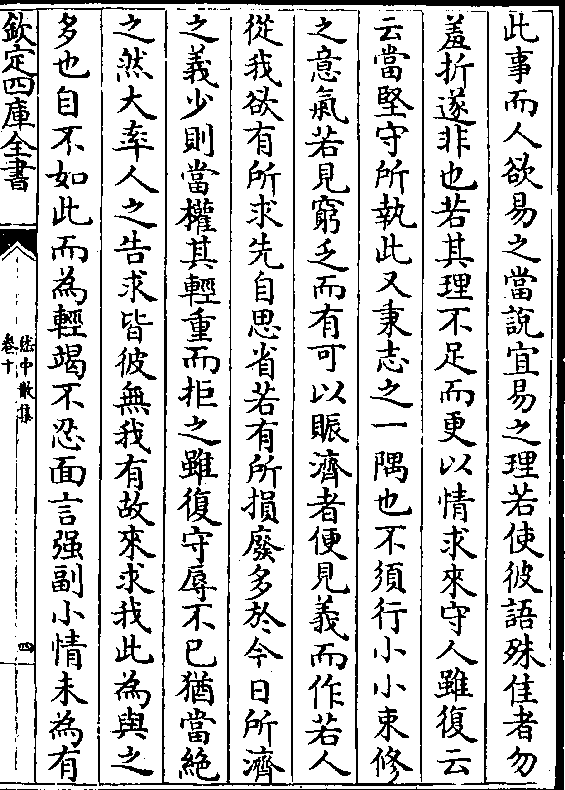 此事而人欲易之當說宜易之理若使彼語殊佳者勿
羞折遂非也若其理不足而更以情求來守人雖復云
云當堅守所執此又秉志之一隅也不須行小小束修
之意氣若見窮乏而有可以賑濟者便見義而作若人
從我欲有所求先自思省若有所損廢多於今日所濟
之義少則當權其輕重而拒之雖復守辱不已猶當絶
之然大率人之告求皆彼無我有故來求我此為與之
多也自不如此而為輕竭不忍面言强副小情未為有
欽定四庫全書
嵇中散集
卷十
四